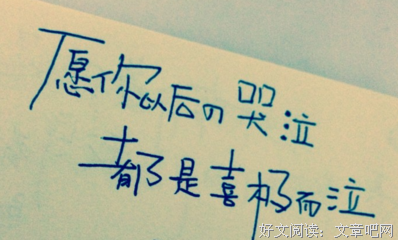 愿你以后の哭泣
都是喜极而泣
好文阅读：文章吧网